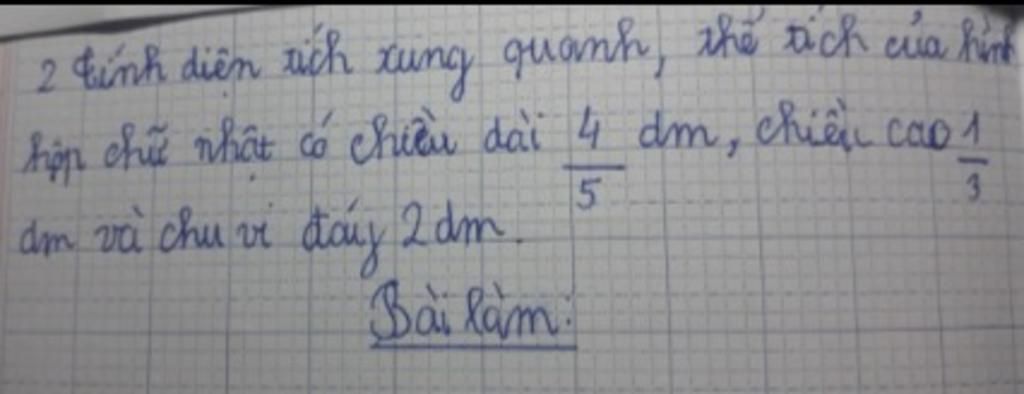 2 tính diện tích xung quanh, thể tích của hình
hộp chữ nhật có chiều dài 4/5 dm, chiều cao 1/3
dm và chu vi đáy 2 dm.
Bài làm: